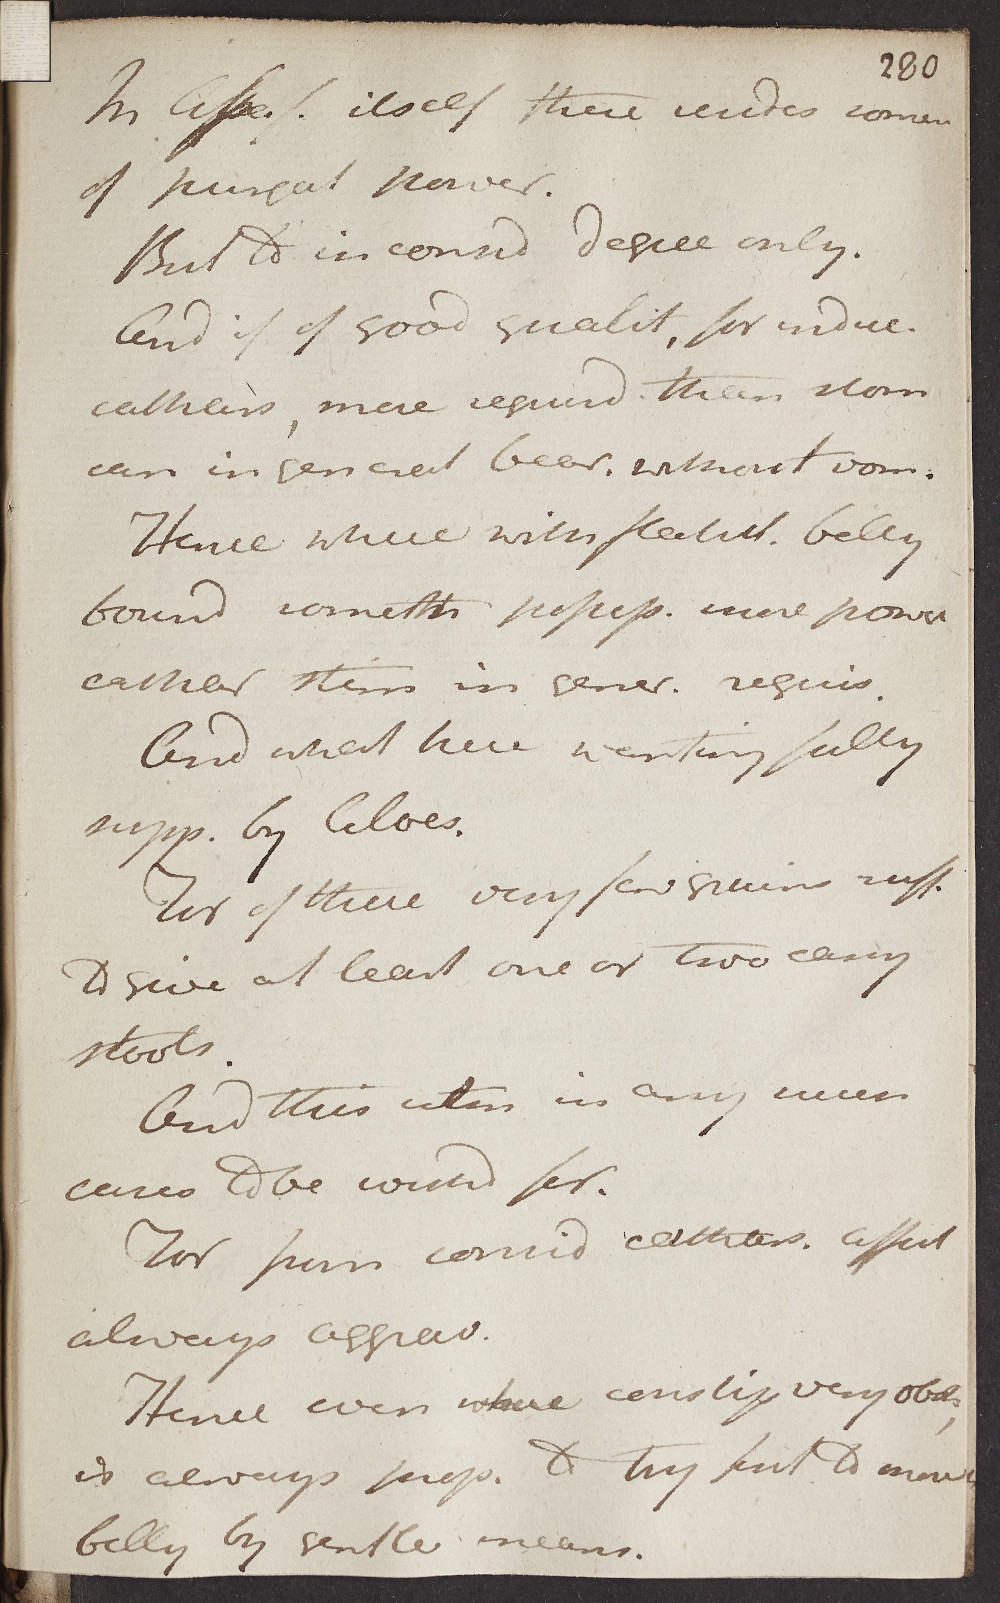 280
In Assaf. itself there resides somew
of purgat power.
But to inconsid degree only.
And if of good qualit, for induc.
cathars, more requird than stom
can in general bear. without vom.
Hence where with flatul. belly
bound someth more power
cathar stim in gener. requis.
And what here wanting fully
supp. by Aloes.
For of there very few grains suff.
to give at least one or two easy
stools.
And this utm in any
cases to be wishd for.
For from consid cathars. affect
always aggrav.
Hence even where constip very obst,
is always prop. to try first to move
belly by gentle means.